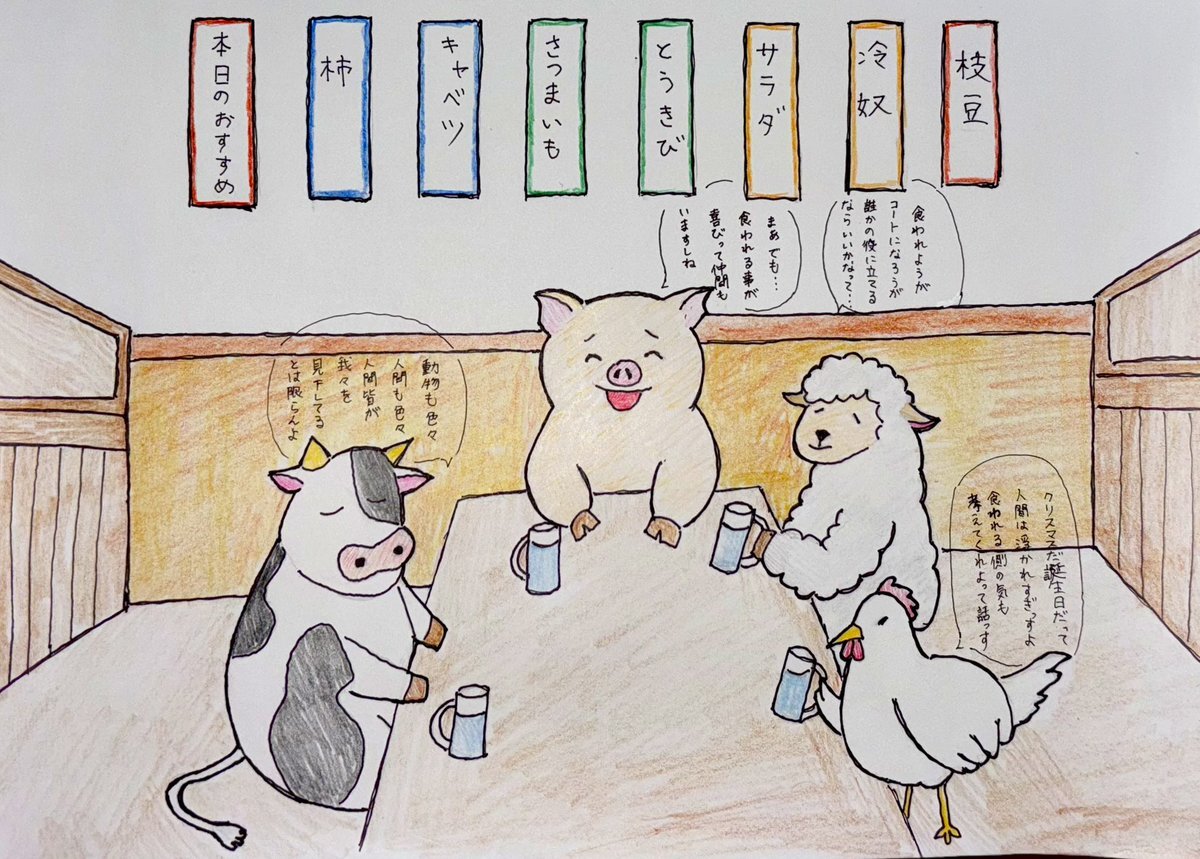 枝豆
冷奴
サラダ
とうきび
さつまいも
キャベツ
柿
本日のおすすめ
食われようが
コートになろうが
誰かの役に立てる
ならいいかなって…
まあでも…
食われる事が
喜びって仲間も
いますしね
動物も色々
人間も色々
人間皆が
我々を
見下してる
とは限らんよ
クリスマスだ誕生日だって
人間は浮かれすぎっすよ
食われる側の気も
考えてくれよって話っす